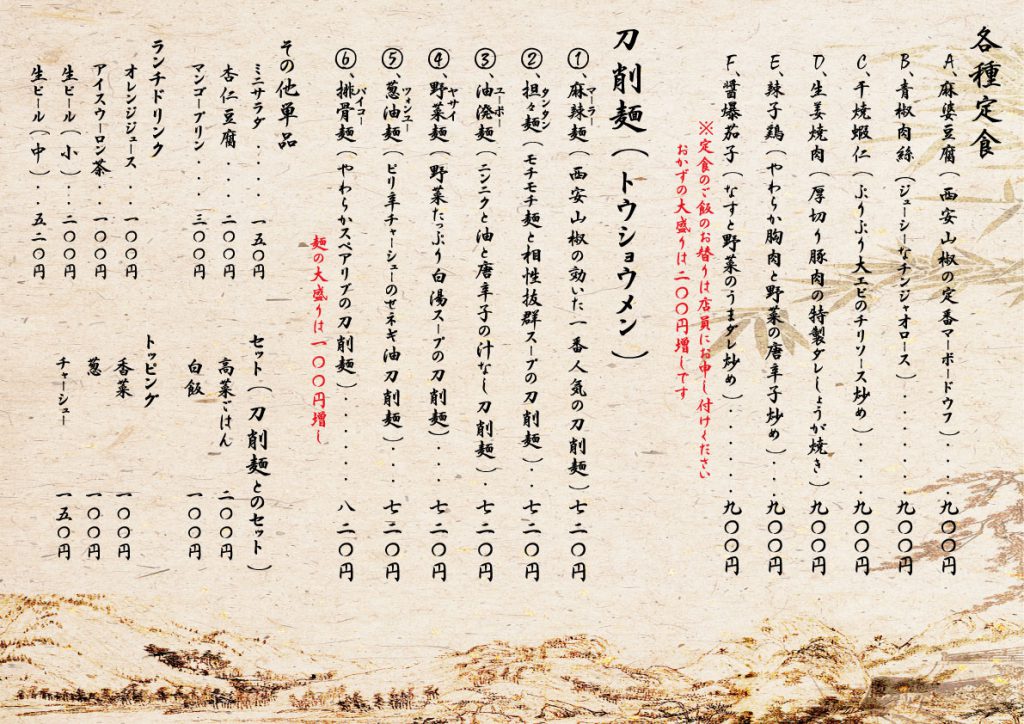 各種定食
A、麻婆豆腐（西安山椒の定番マーボードウフ）・・・九〇〇円
B、青椒肉絲（ジューシーなチンジャオロース）・・・・・・九〇〇円
C、干焼蝦仁（ぷりぷり大エビのチリソース炒め）・・・・九〇〇円
D、生姜焼肉（厚切り豚肉の特製ダレしょうが焼き）・九〇〇円
E、辣子鶏（やわらか胸肉と野菜の唐辛子炒め）・・・九〇〇円
F、醤爆茄子（なすと野菜のうまダレ炒め）・・・・・・九〇〇円
※定食のご飯のお替りは店員にお申し付けください
おかずの大盛りは二〇〇円増しです
刀削麺（トウショウメン）
①、麻辣麺（西安山椒の効いた一番人気の刀削麺）七二〇円
マーラー
②、担々麺（モチモチ麺と相性抜群スープの刀削麺）・・七二〇円
タンタン
③、油溌麺（ニンニクと油と唐辛子の汁なし刀削麺）・七二〇円
ユーポー
④、野菜麺（野菜たっぷり白湯スープの刀削麺）・・・・七二〇円
ヤサイ
⑤、葱油麺（ピリ辛チャーシューのせネギ油刀削麺）・・・七二〇円
ツォンユー
⑥、排骨麺（やわらかスペアリブの刀削麺）・・・・・・・八二〇円
パイコー
麺の大盛りは一〇〇円増し
その他単品
ミニサラダ・・・・一五〇円
杏仁豆腐・・・二〇〇円
マンゴープリン・・・三〇〇円
ランチドリンク
オレンジジュース・・一〇〇円
アイスウーロン茶・・一〇〇円
生ビール（小）・・二〇〇円
生ビール（中）・・五二〇円
セット（刀削麺とのセット）
高菜ごはん 二〇〇円
白飯 一〇〇円
トッピング
香菜 一〇〇円
葱 一〇〇円
チャーシュー 一五〇円